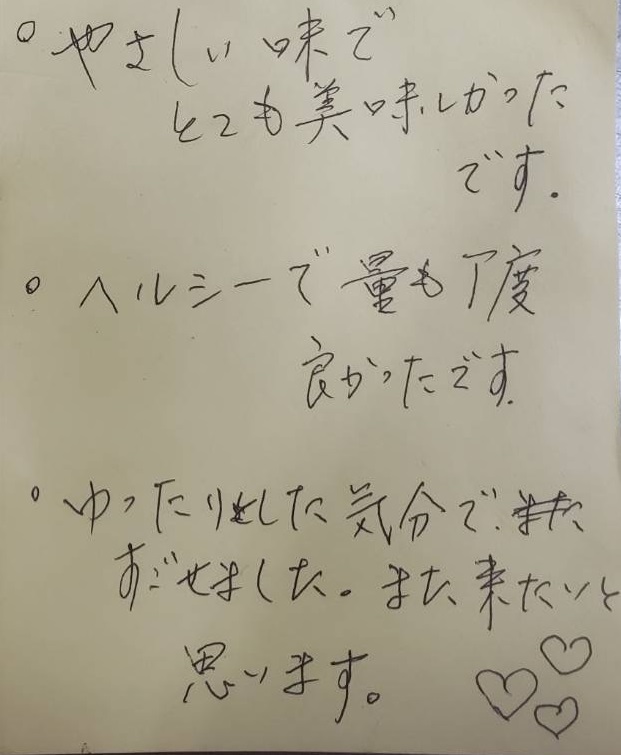 ○ やさしい 味で
とても美味しかった
です。
○ ヘルシーで 量も丁度
良かったです。
○ ゆったりとした気分で、
すごせました。また来たいと
思います。